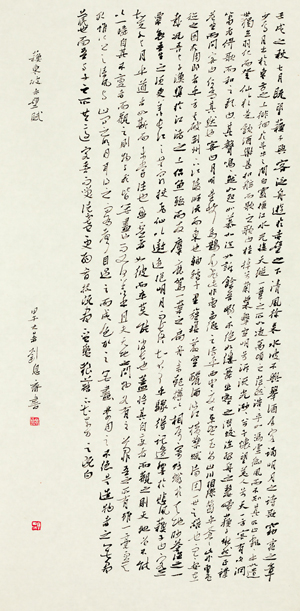 壬戌之秋七月既望蘇子與客泛舟遊於赤壁之下清風徐來水波不興舉酒屬客誦明月之詩歌窈窕之章
少焉月出於東山之上徘徊於斗牛之間白露橫江水光接天縱一葦之所如凌萬頃之茫然浩浩乎如馮虛御風而不知其所止飄飄乎如遺
世獨立羽化而登仙於是飲酒樂甚扣舷而歌之歌曰桂棹兮蘭槳擊空明兮泝流光渺渺兮予懷望美人兮天一方客有吹洞
簫者倚歌而和之其聲嗚嗚然如怨如慕如泣如訴餘音嫋嫋不絕如縷舞幽壑之潛蛟泣孤舟之嫠婦蘇子愀然正襟
危坐而問客曰何為其然也客曰月明星稀烏鵲南飛此非曹孟德之詩乎西望夏口東望武昌山川相繆鬱乎蒼蒼此非孟德
之困於周郎者乎方其破荊州下江陵順流而東也舳艫千里旌旗蔽空釃酒臨江橫槊賦詩固一世之雄也而今安在
哉況吾與子漁樵於江渚之上侶魚蝦而友麋鹿駕一葉之扁舟舉匏樽以相屬寄蜉蝣於天地渺滄海之一
粟哀吾生之須臾羨長江之無窮挾飛仙以遨遊抱明月而長終知不可乎驟得託遺響於悲風蘇子曰客
亦知夫水與月乎逝者如斯而未嘗往也盈虛者如彼而卒莫消長也蓋將自其變者而觀之則天地曾不能
以一瞬自其不變者而觀之則物與我皆無盡也而又何羨乎且夫天地之間物各有主苟非吾之所有雖一毫而莫
取惟江上之清風與山間之明月耳得之而為聲目遇之而成色取之無禁用之不竭是造物者之無盡
藏也而吾與子之所共適客喜而笑洗盞更酌肴核既盡杯盤狼藉不知東方之既白
蘇東坡赤壁賦